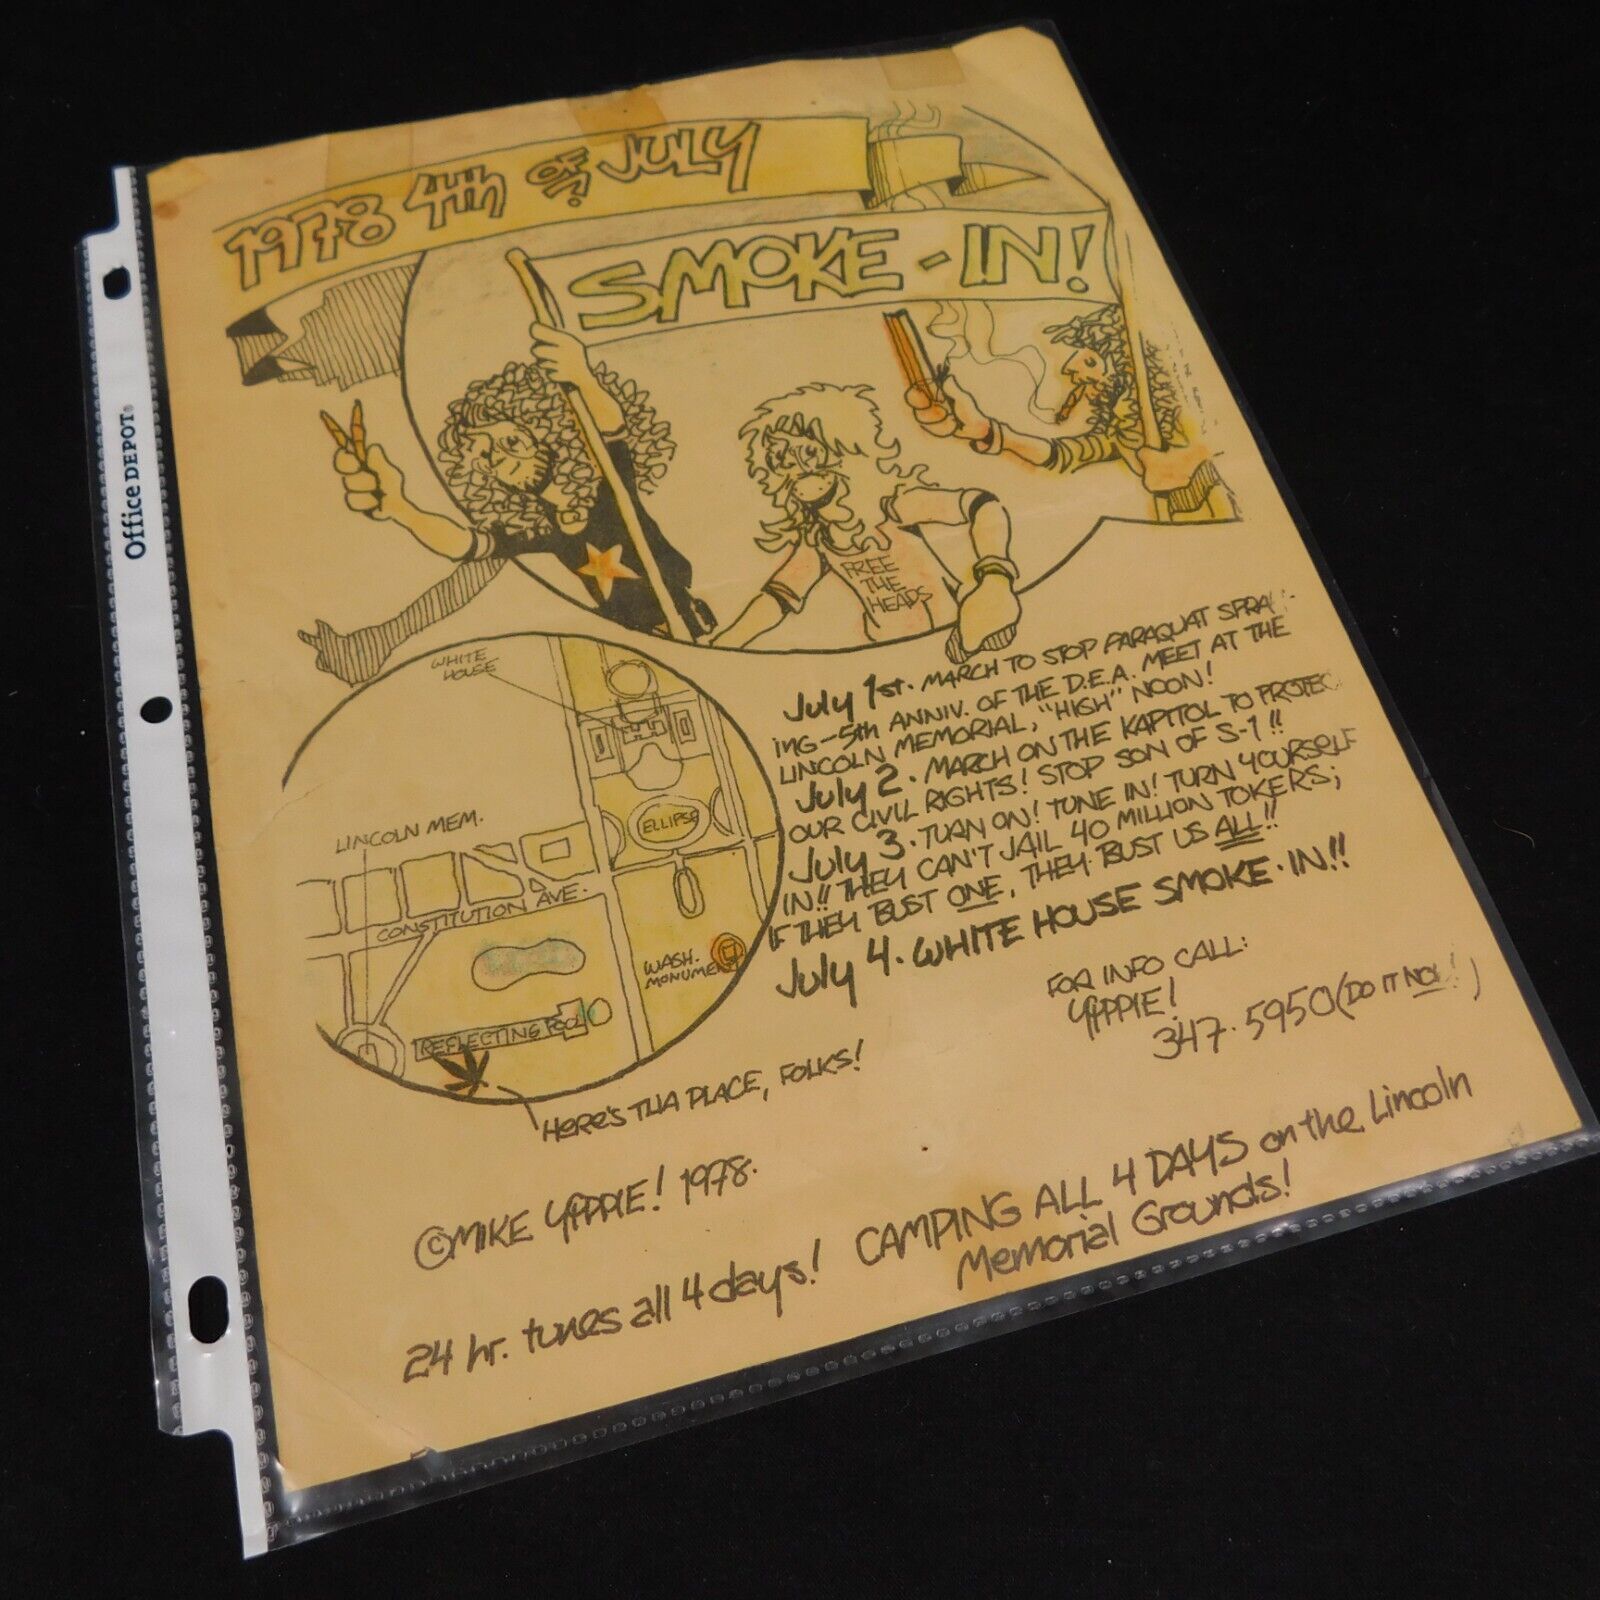 Office DEPOT
1978 4th OF JULY
SMOKE-IN!
FREE
THE
HEADS
WHITE
HOUSE
LINCOLN MEM.
ELLIPSE
CONSTITUTION AVE.
WASH.
MONUMENT
REFLECTING POOL
HERE'S THA PLACE, FOLKS!
July 1st. MARCH TO STOP PARAQUAT SPRAY-
ING-5th ANNIV. OF THE D.E.A. MEET AT THE
LINCOLN MEMORIAL, "HIGH" NOON!
July 2. MARCH ON THE KAPITOL TO PROTECT
OUR CIVIL RIGHTS! STOP SON OF S-1!!
July 3. TURN ON! TUNE IN! TURN YOURSELF
IN!! THEY CAN'T JAIL 40 MILLION TOKERS;
IF THEY BUST ONE, THEY BUST US ALL!!
July 4. WHITE HOUSE SMOKE-IN!!
FOR INFO CALL:
YIPPIE!
347-5950 (DO IT NOW!)
©MIKE YIPPIE! 1978.
24 hr. tunes all 4 days! CAMPING ALL 4 DAYS on the Lincoln
Memorial Grounds!